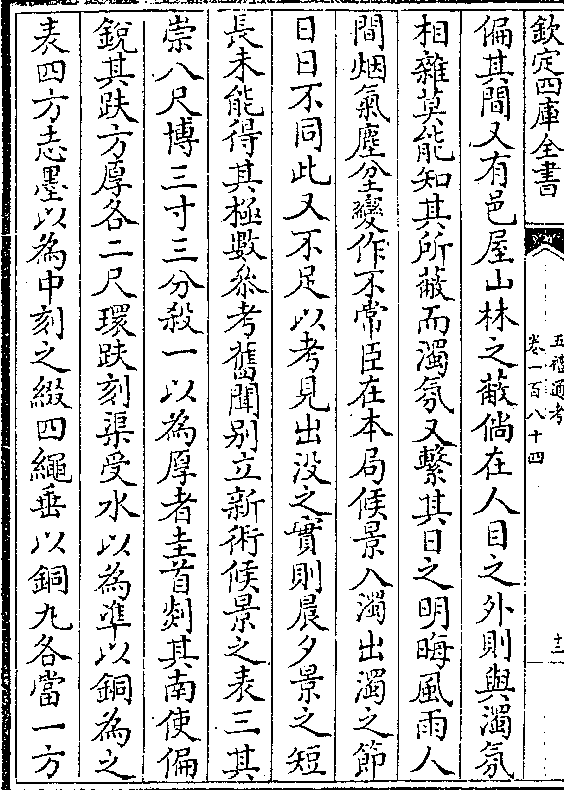 欽定四庫全書
五禮通考
卷一百八十四
十三
偏其間又有邑屋山林之蔽倘在人目之外則與濁氛
相雜莫能知其所蔽而濁氛又繫其日之明晦風雨人
間烟氣塵坌變作不常臣在本局候景入濁出濁之節
日日不同此又不足以考見出没之實則晨夕景之短
長未能得其極數叅考舊聞别立新術候景之表三其
崇八尺博三寸三分殺一以為厚者圭首剡其南使偏
銳其趺方厚各二尺環趺刻渠受水以為凖以銅為之
表四方志墨以為中刻之綴四繩垂以銅丸各當一方